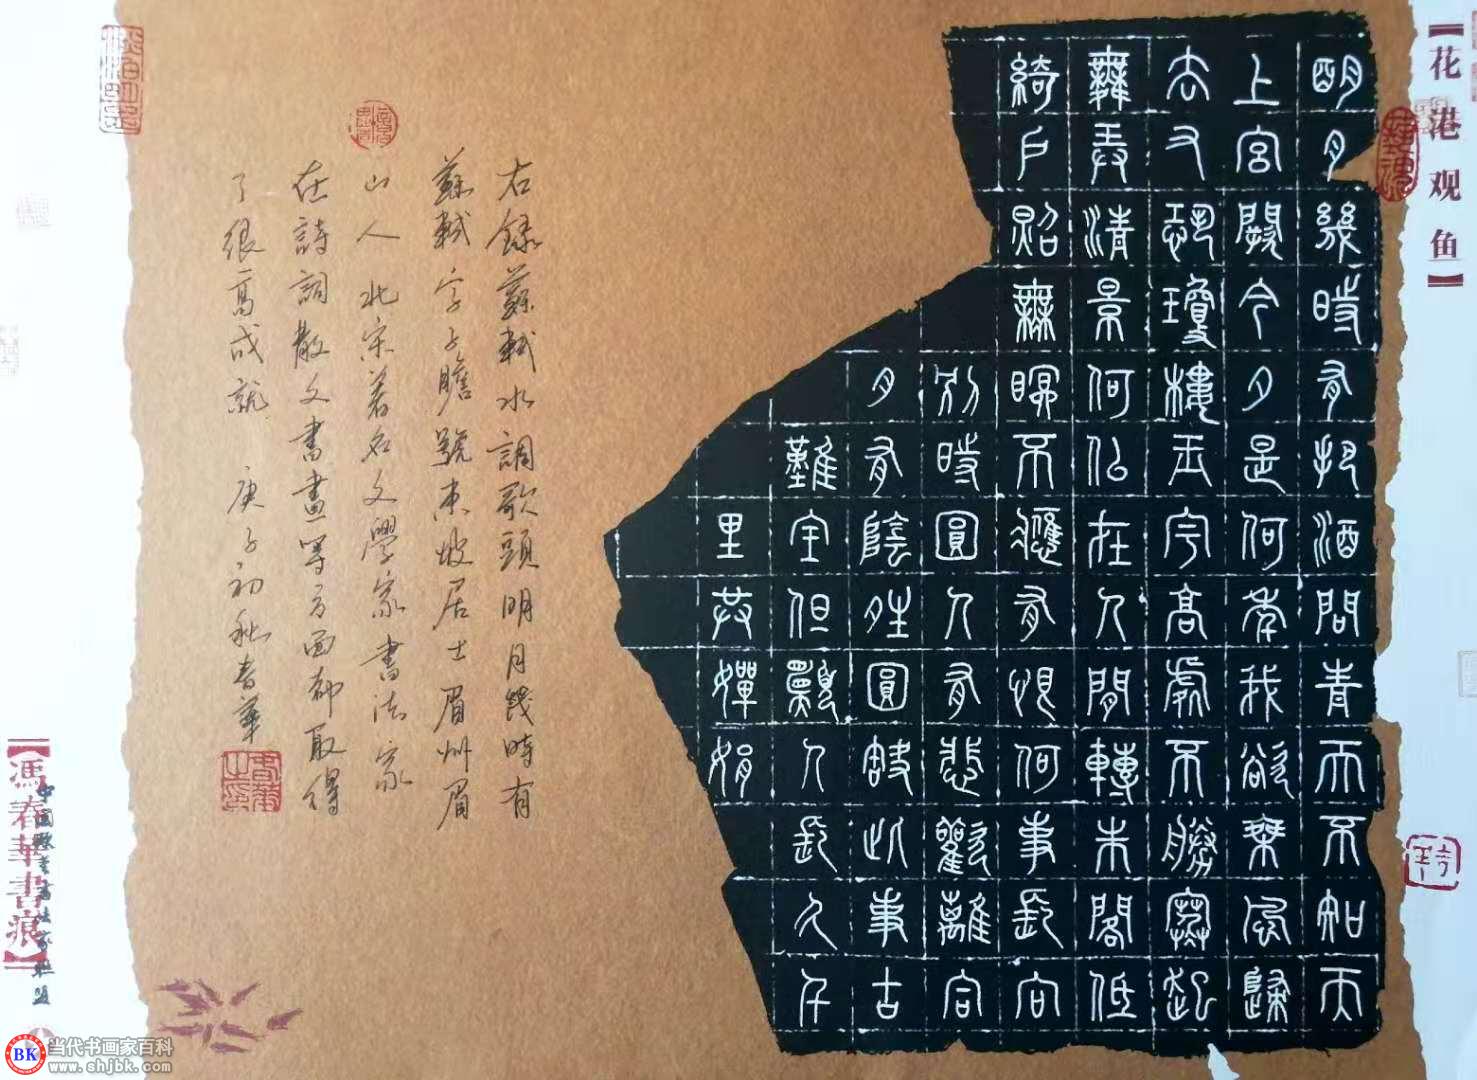 【花港观鱼】
明月幾時有把酒問青天不知天
上宮闕今夕是何年我欲乘風歸
去又恐瓊樓玉宇高處不勝寒起
舞弄清景何似在人間轉朱閣低
綺戶照無眠不應有恨何事長向
別時圓人有悲歡離合
月有陰晴圓缺此事古
難全但願人長久千
里共嬋娟
右錄蘇軾水調歌頭明月幾時有
蘇軾字子瞻號東坡居士眉州眉
山人北宋著名文學家書法家
在詩詞散文書畫等方面都取得
了很高成就 庚子初秋春華
春華之印
【馮春華書痕】
中国硬笔书法家联盟
BK 当代书画家百科
www.shjbk.com